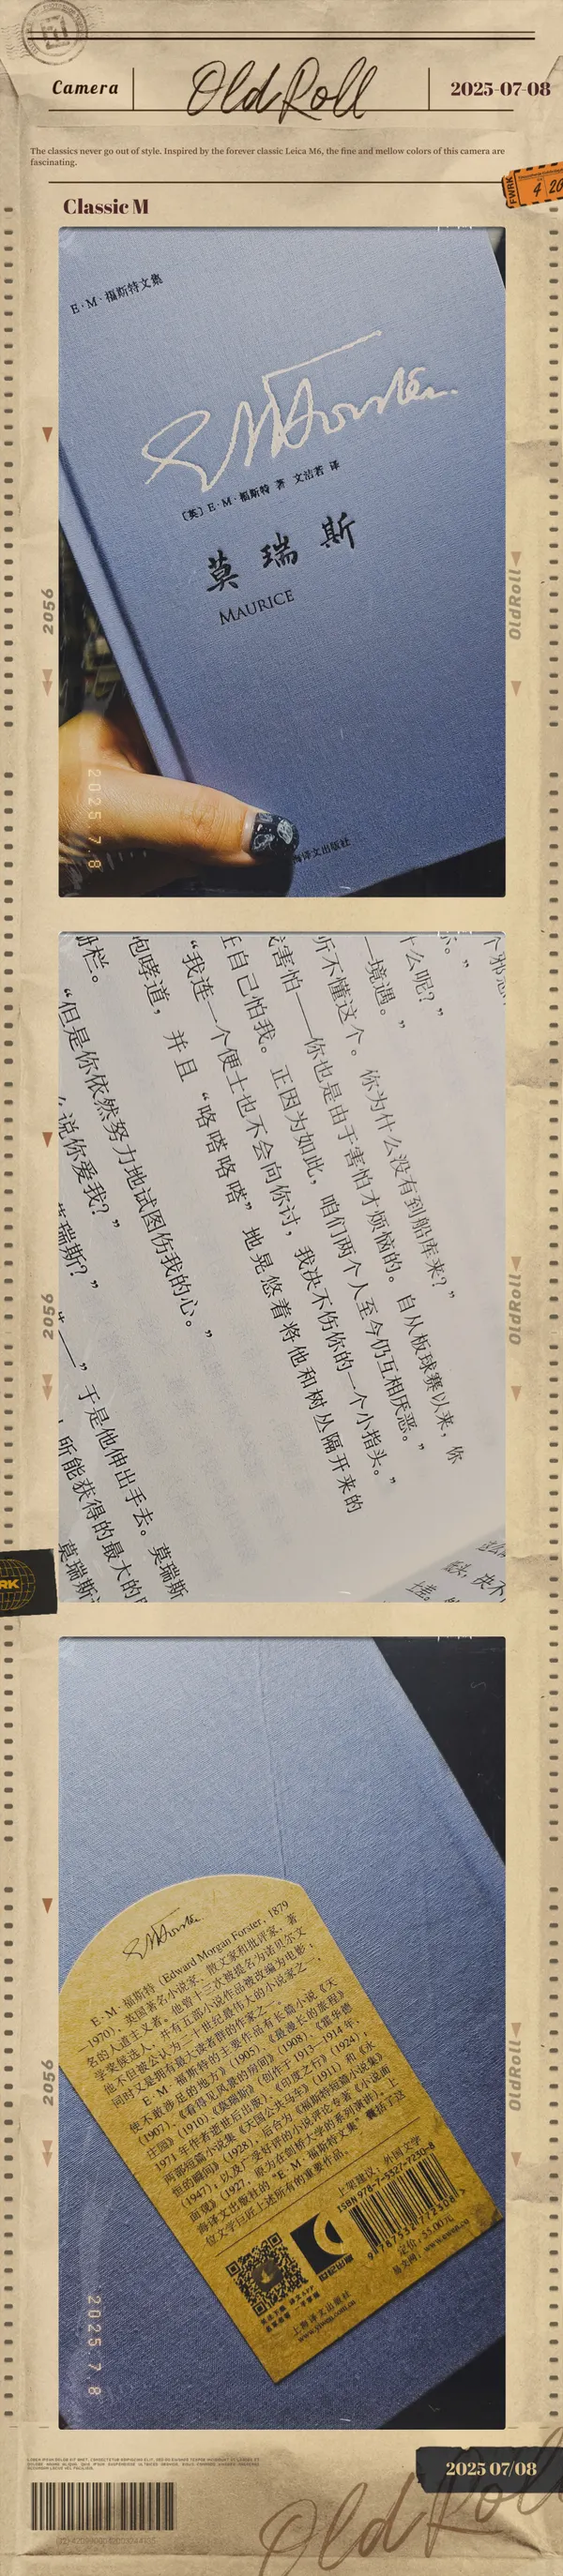 Camera
OldRoll
2025-07-08
The classics never go out of style. Inspired by the forever classic Leica M6, the fine and mellow colors of this camera are
fascinating.
FWRK
4
20
Classic M
E·M·福斯特文集
EMForster.
〔英〕E·M·福斯特 著 文洁若 译
莫瑞斯
MAURICE
海译文出版社
2025.7.8
2056
OldRoll
么呢?”
一境遇。”
所不懂这个。 你为什么没有到船库来?”
害怕——你也是由于害怕才烦恼的。 自从板球赛以来, 你
自己怕我。 正因为如此, 咱们两个人至今仍互相厌恶。”
“我连一个便士也不会向你讨, 我决不伤你的一个小指头。”
咆哮道, 并且 “咯嗒咯嗒” 地晃悠着将他和树丛隔开来的
栅栏。
“但是你依然努力地试图伤我的心。”
说你爱我?”
莫瑞斯?”
——” 于是他伸出手去。 莫瑞斯
所能获得的最大的
莫瑞斯
2056
OldRoll
RK
EMForster.
E·M·福斯特 (Edward Morgan Forster, 1879
—1970), 英国著名小说家、散文家和批评家, 著
名的人道主义者。他曾十三次被提名为诺贝尔文
学奖候选人, 并有五部小说作品被改编为电影,
他不但被公认为二十世纪最伟大的小说家之一,
同时又是拥有最大读者群的作家之一。
E·M·福斯特的主要作品有长篇小说《天
使不敢涉足的地方》(1905)、《最漫长的旅程》
(1907)、《看得见风景的房间》(1908)、《霍华德
庄园》(1910)、《莫瑞斯》(创作于 1913—1914 年,
1971 年作者逝世后出版)、《印度之行》(1924),
两部短篇小说集《天国公共马车》(1911) 和《永
恒的瞬间》(1928), 后合为《福斯特短篇小说集》
(1947), 以及广受好评的小说评论专著《小说面
面观》(1927, 原为在剑桥大学的系列演讲)。上
海译文出版社的“E·M·福斯特文集”囊括了这
位文学巨匠上述所有的重要作品。
上架建议: 外国文学
ISBN 978-7-5327-7230-8
定价: 55.00元
易文网: www.ewen.co
上海译文出版社
www.yiwen.com.cn
2056
OldRoll
2025.7.8
2025 07/08
OldRoll